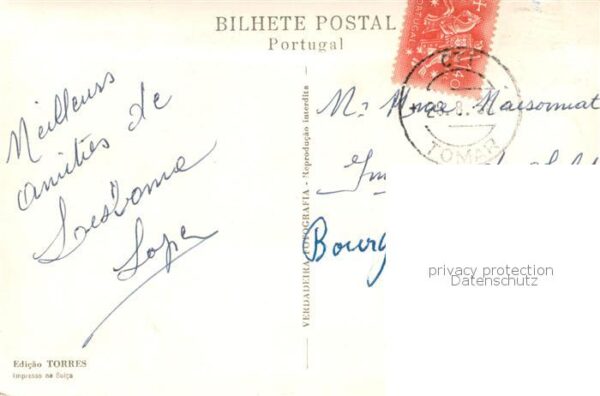 BILHETE POSTAL
Portugal
PORTUGAL
CTT
TOMAR
Meilleurs
amitiés de
Lopes
VERDADEIRA FOTOGRAFIA - Reprodução interdita
Mr Mme Maisonniat
Bourg
privacy protection
Datenschutz
Edição TORRES
Impresso na Suíça